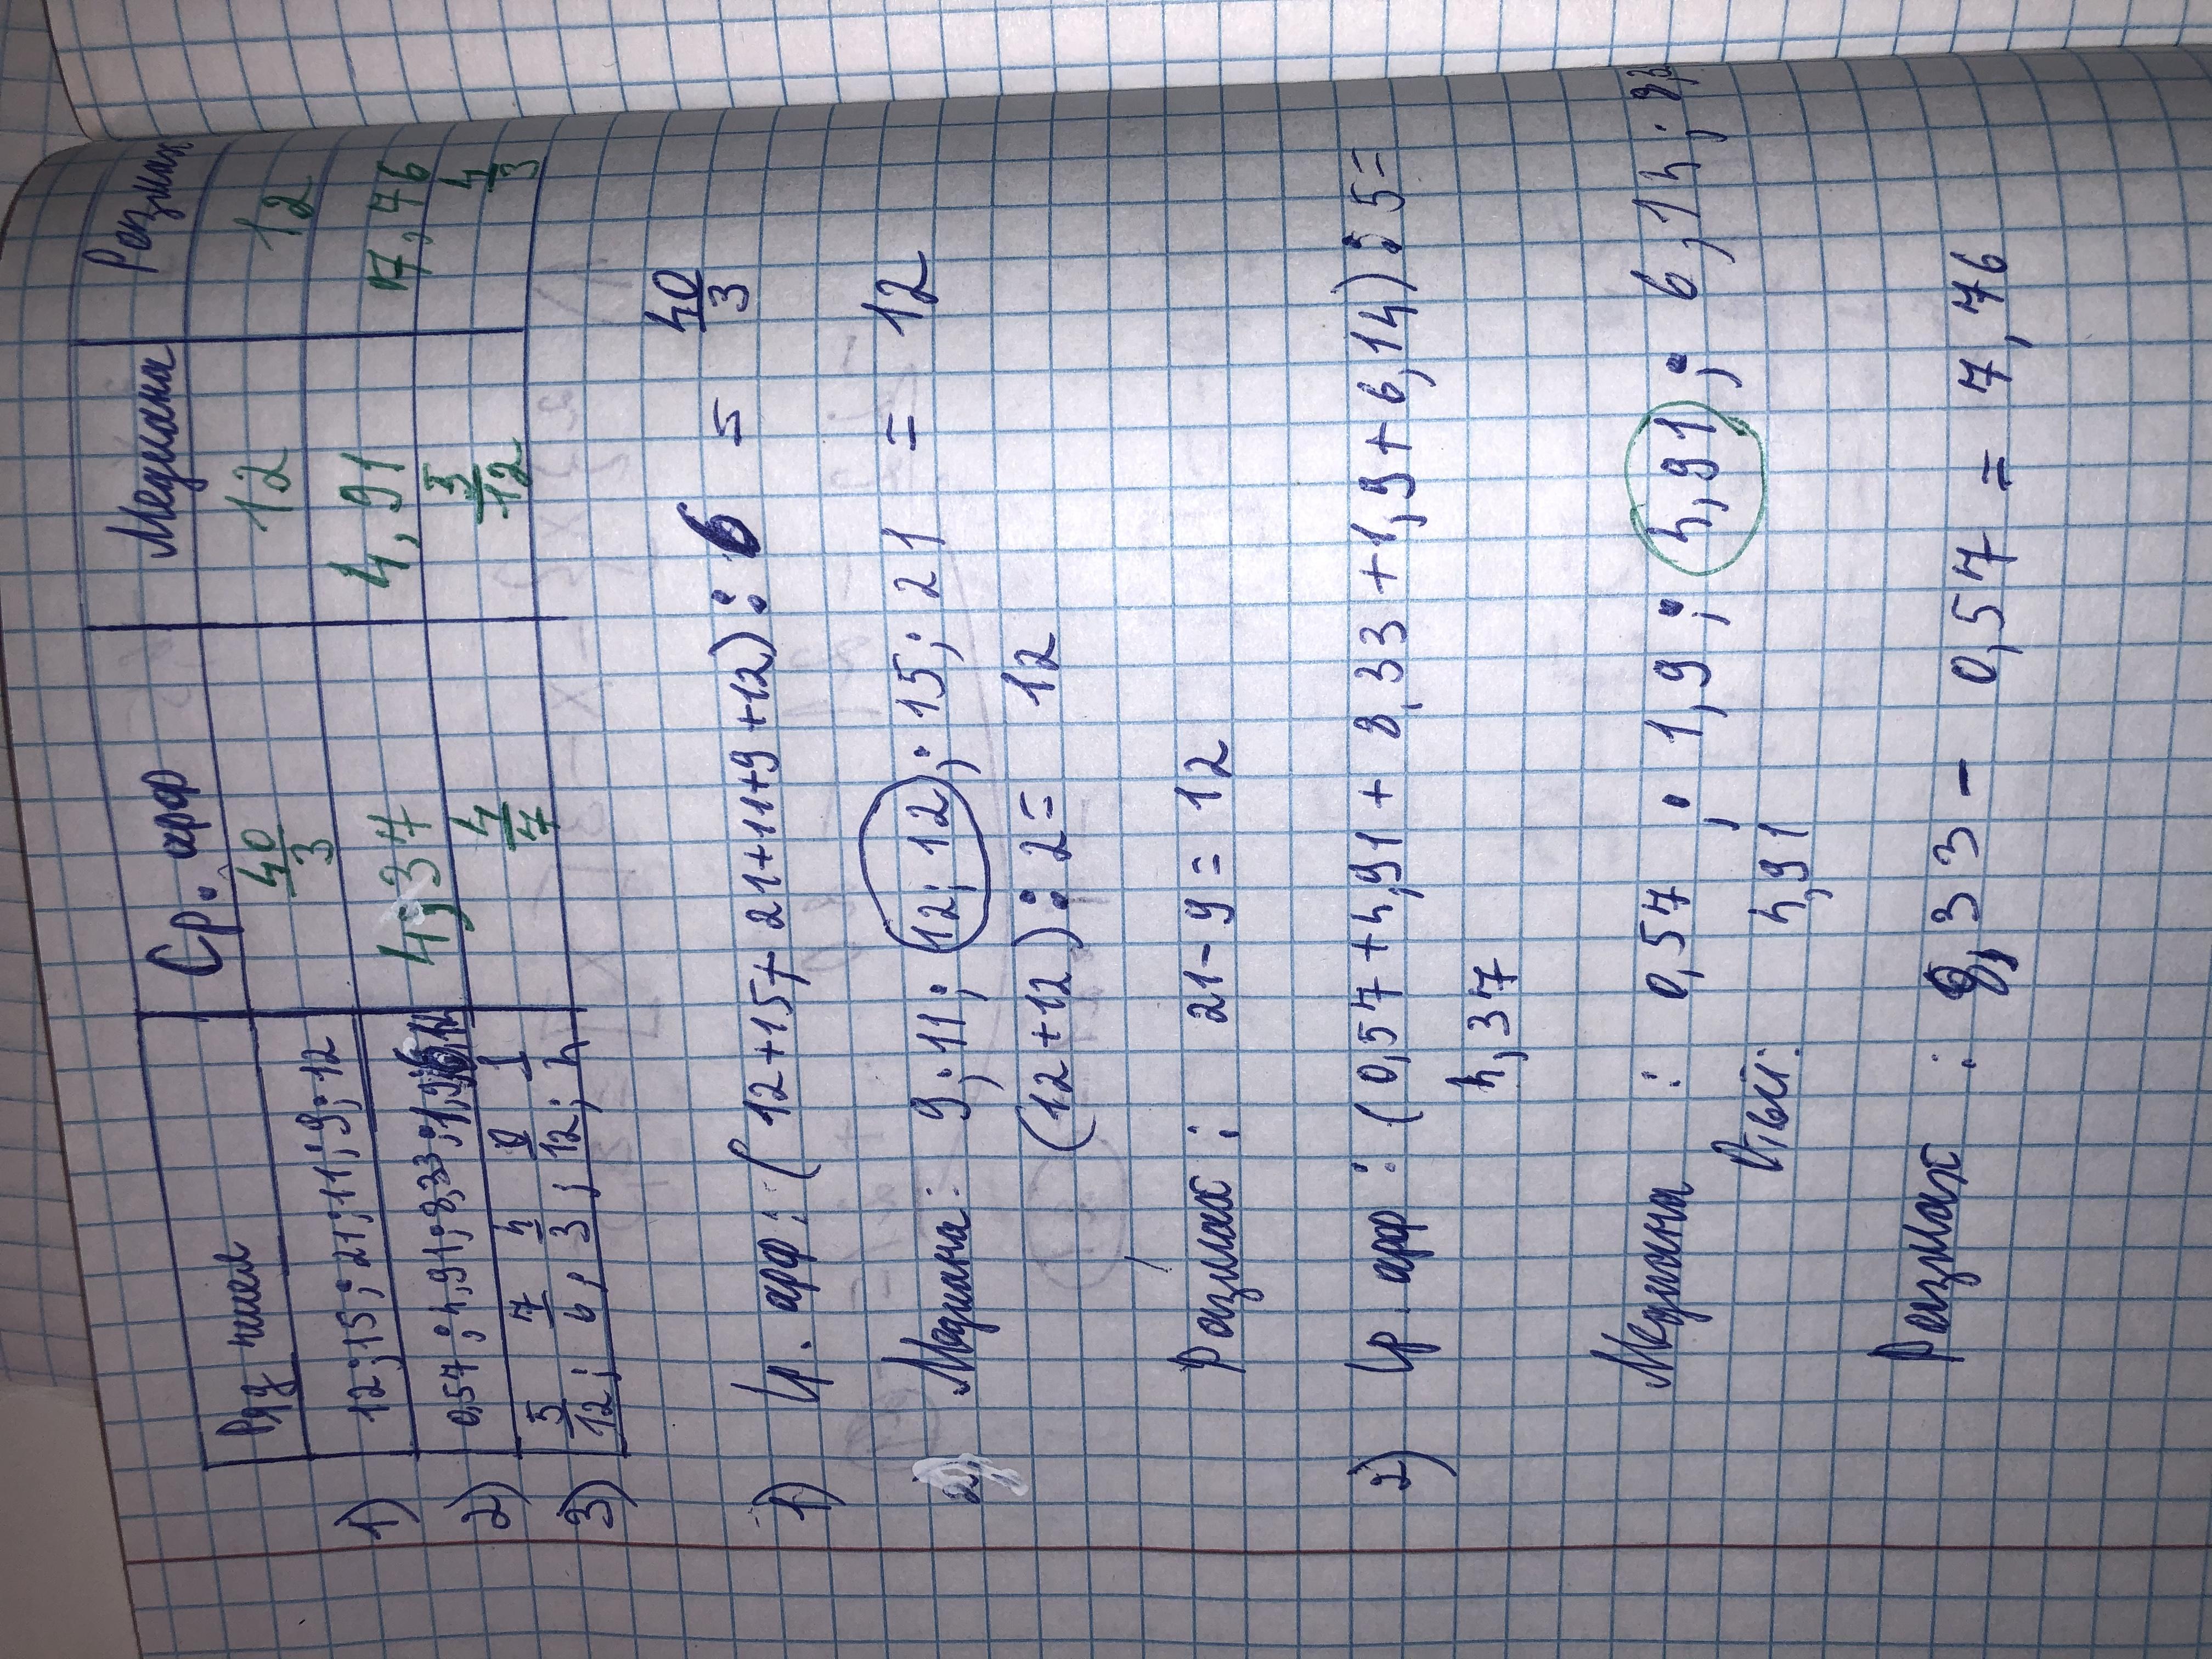 Ряд чисел Ср. ариф Медиана Размах
1) 12; 15; 21; 11; 9; 12 40/3 12 12
2) 0,57; 4,91; 8,33; 1,9; 4,37 4,91 7,76
3) 5/12; 7/6; 4/3; 0/12; 1/4 4/7 5/12 4/3
1) Ср. ариф: (12+15+21+11+9+12):6 = 40/3
Медиана: 9; 11; 12; 12; 15; 21 = 12
(12+12):2= 12
Размах: 21-9=12
2) Ср. ариф: (0,57+4,91+8,33+1,9+6,14):5=
4,37
Медиана: 0,57; 1,9; 4,91; 6,14; 8,3
Ответ: 4,91
Размах: 8,33 - 0,57 = 7,76